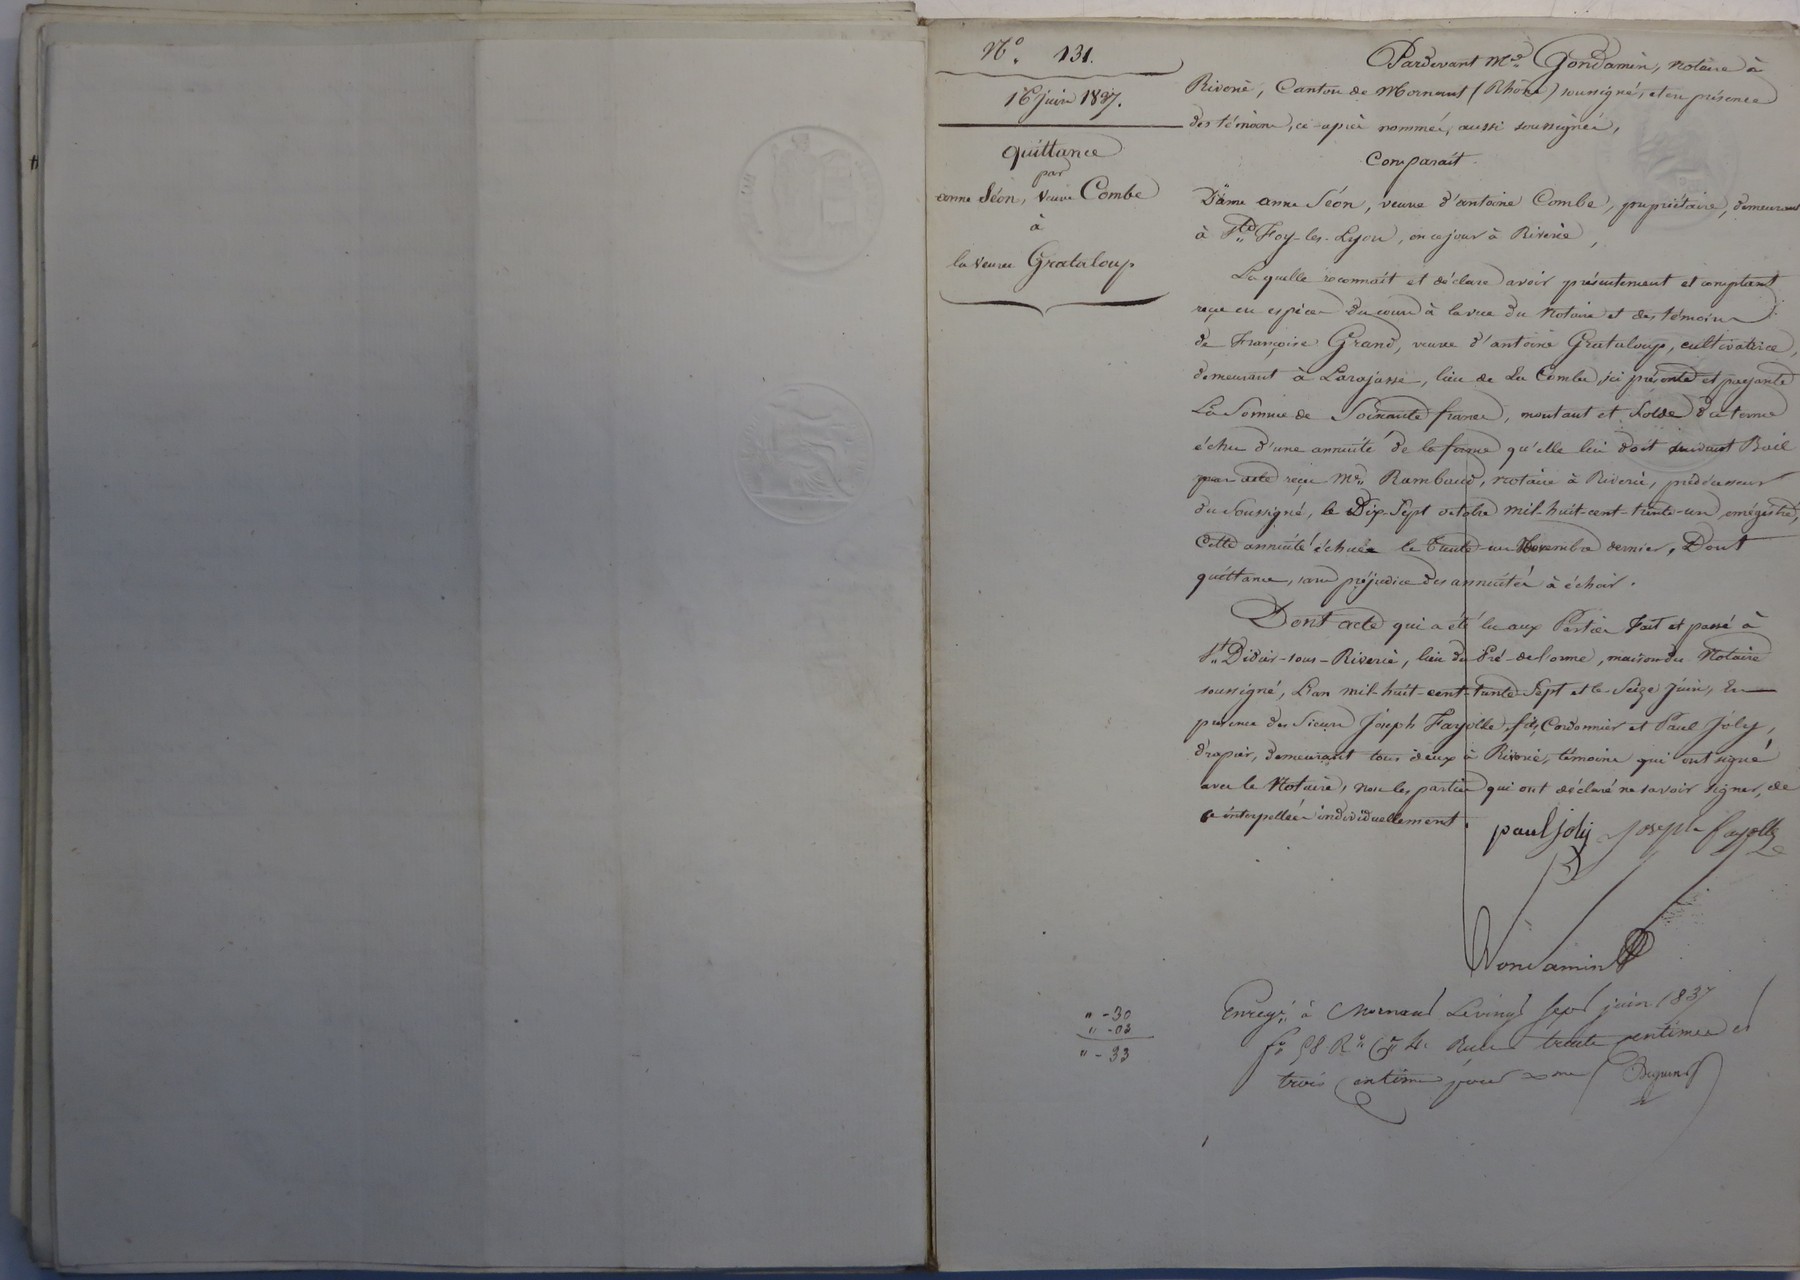 N.° 131.
16 juin 1837.
quittance
par
anne Séon, Veuve Combe
à
la Veuve Grataloup
Pardevant Me Gondamin, Notaire à
Riverie, Canton de Mornant (Rhône) soussigné, et en présence
des témoins, ci-après nommés, aussi soussignés,
Comparait.
Dame anne Séon, veuve d'antoine Combe, propriétaire, demeurant
à Ste Foy-les-Lyon, en ce jour à Riverie,
Laquelle reconnait et déclare avoir présentement et comptant
reçu en espèces du cours à la vue du Notaire et des témoins
de Françoise Grand, veuve d'antoine Grataloup, cultivatrice,
demeurant à Larajasse, lieu de La Combe, ici présente et payante
La Somme de Soixante francs, montant et Solde du terme
échu d'une annuité de la ferme qu'elle lui doit suivant Bail
par acte reçu Me Rambaud, notaire à Riverie, prédécesseur
du Soussigné, le Dix-Sept octobre mil-huit-cent-trente-un, enregistré,
Cette annuité échue le trente-un Novembre dernier, Dont
quittance, sans préjudice des annuités à échoir.
Dont acte qui a été lu aux Parties Fait et passé à
St Didier-sous-Riverie, lieu du Pré-de-l'orme, maison du Notaire
soussigné, L'an mil-huit-cent-trente-Sept et le Seize Juin, En
présence des Sieurs Joseph Fayolle fils, Cordonnier et Paul Joly,
drapier, demeurant tous deux à Riverie, témoins qui ont signé
avec le Notaire, non les parties qui ont déclaré ne savoir signer, de
ce interpellées individuellement.
paul joly Joseph fayolle
Gondamin
" - 30
" - 03
" - 33
Enregé à Mornant Le vingt Sept juin 1837
fo 58 Ro Ce 4. Reçu trente centimes et
trois centimes pour xme